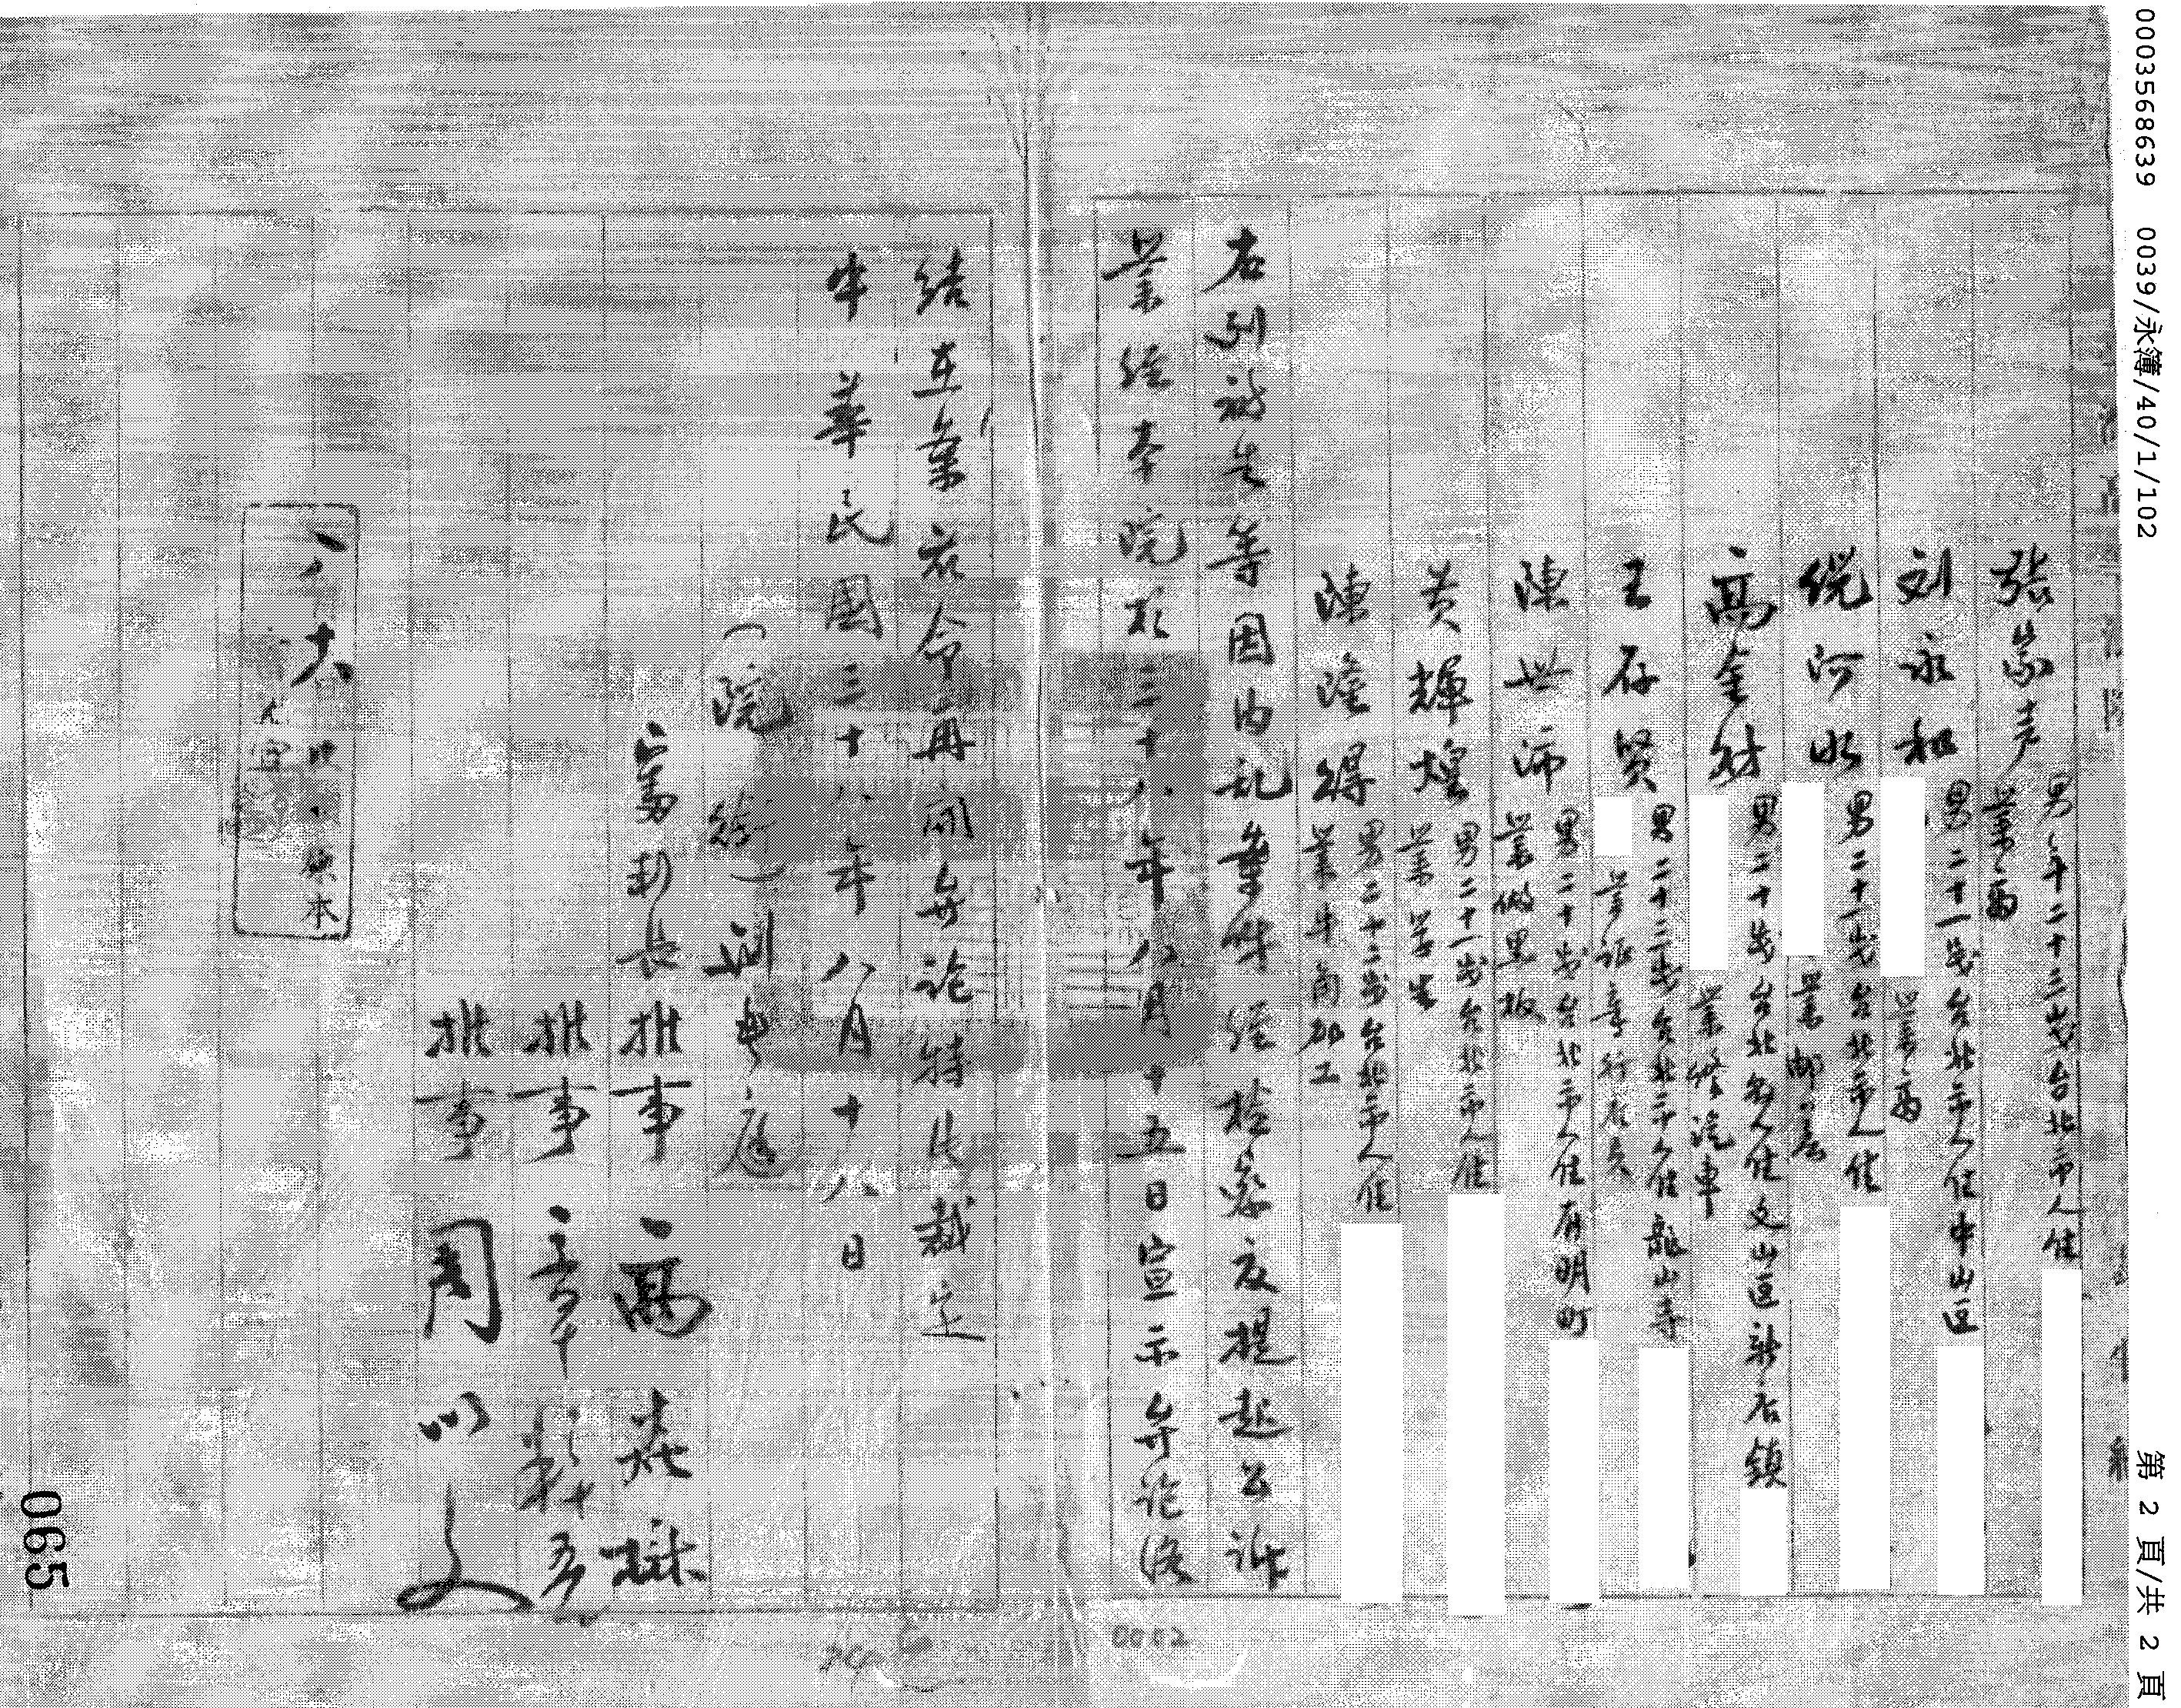 0003568639 0039/永簿/40/1/102
第 2 頁/共 2 頁
張家声 男年二十三歲台北市人住
業商
刘永和 男二十一歲台北市人住中山区
業商
倪河水 男二十一歲台北市人住
業
高金材 男二十歲台北縣人住文山區新店鎮
業修汽車
王石賢 男二十三歲台北市人住龍山寺
陳世沛 男二十歲台北市人住有明町
業做黑板
黃輝煌 男二十一歲台北市人住
業学生
陳隆得 男二十二歲台北市人住
業牛角砌工
右列被告等因内乱案件経檢察官提起公訴
業経本院於三十八年八月十五日宣示弁论終
結玆案应令再開弁论特此裁定
中華民國三十八年八月十八日
(院銜)刑事庭
審判長推事 高焱樾
推事
推事 周
八 六
本
065
0002